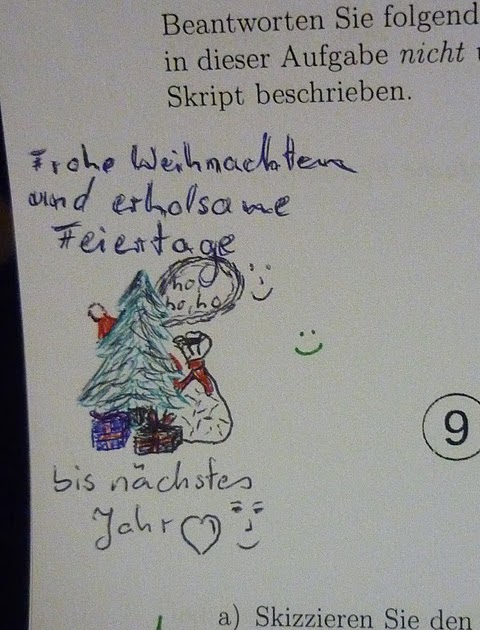 Beantworten Sie folgend
in dieser Aufgabe nicht
Skript beschrieben.
Frohe Weihnachten
und erholsame
Feiertage
ho
ho, ho
9
bis nächstes
Jahr
a) Skizzieren Sie den